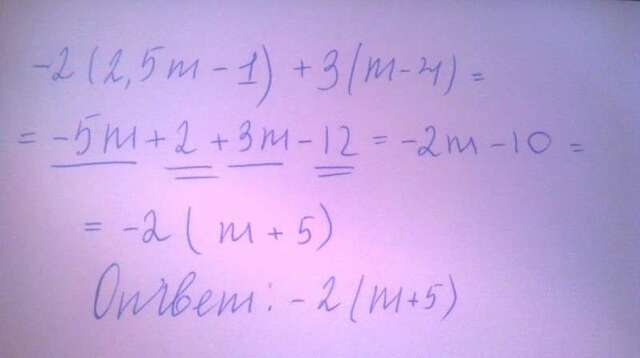 -2(2,5m-1)+3(m-4)=
=-5m+2+3m-12=-2m-10=
=-2(m+5)
Ответ: -2(m+5)